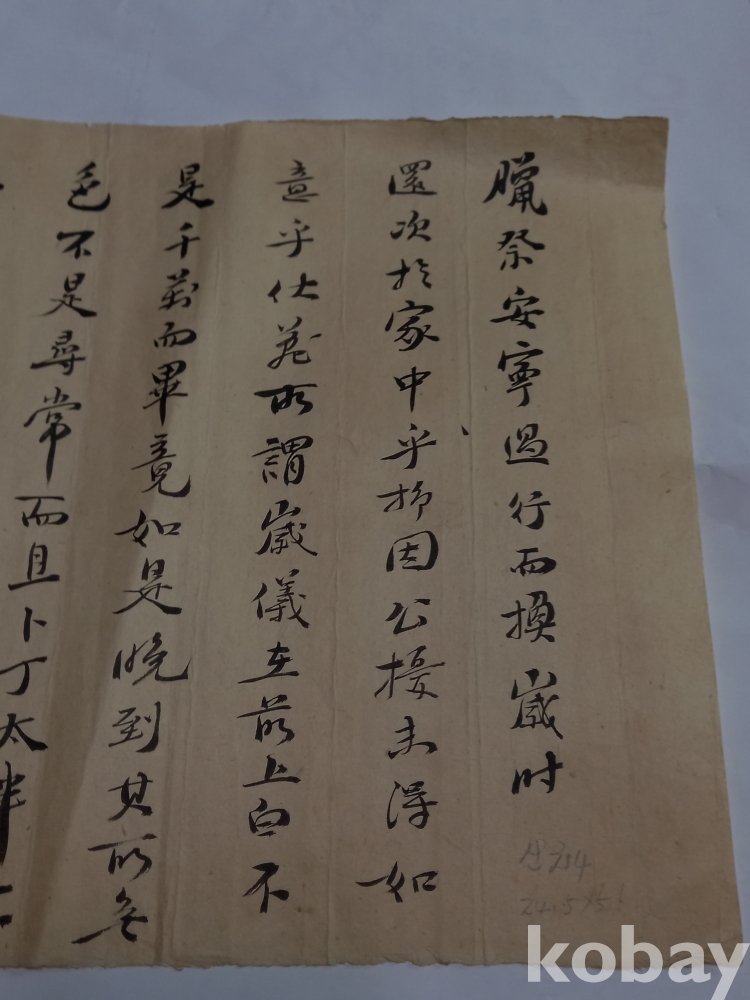 臘祭安寧過行而換歲時
還次於家中乎抑因公擾未得如
意乎伏慕所謂歲儀在前上白不
是千萬而畢竟如是晚到其所無
色不是尋常而且卜丁太
24.5
kobay